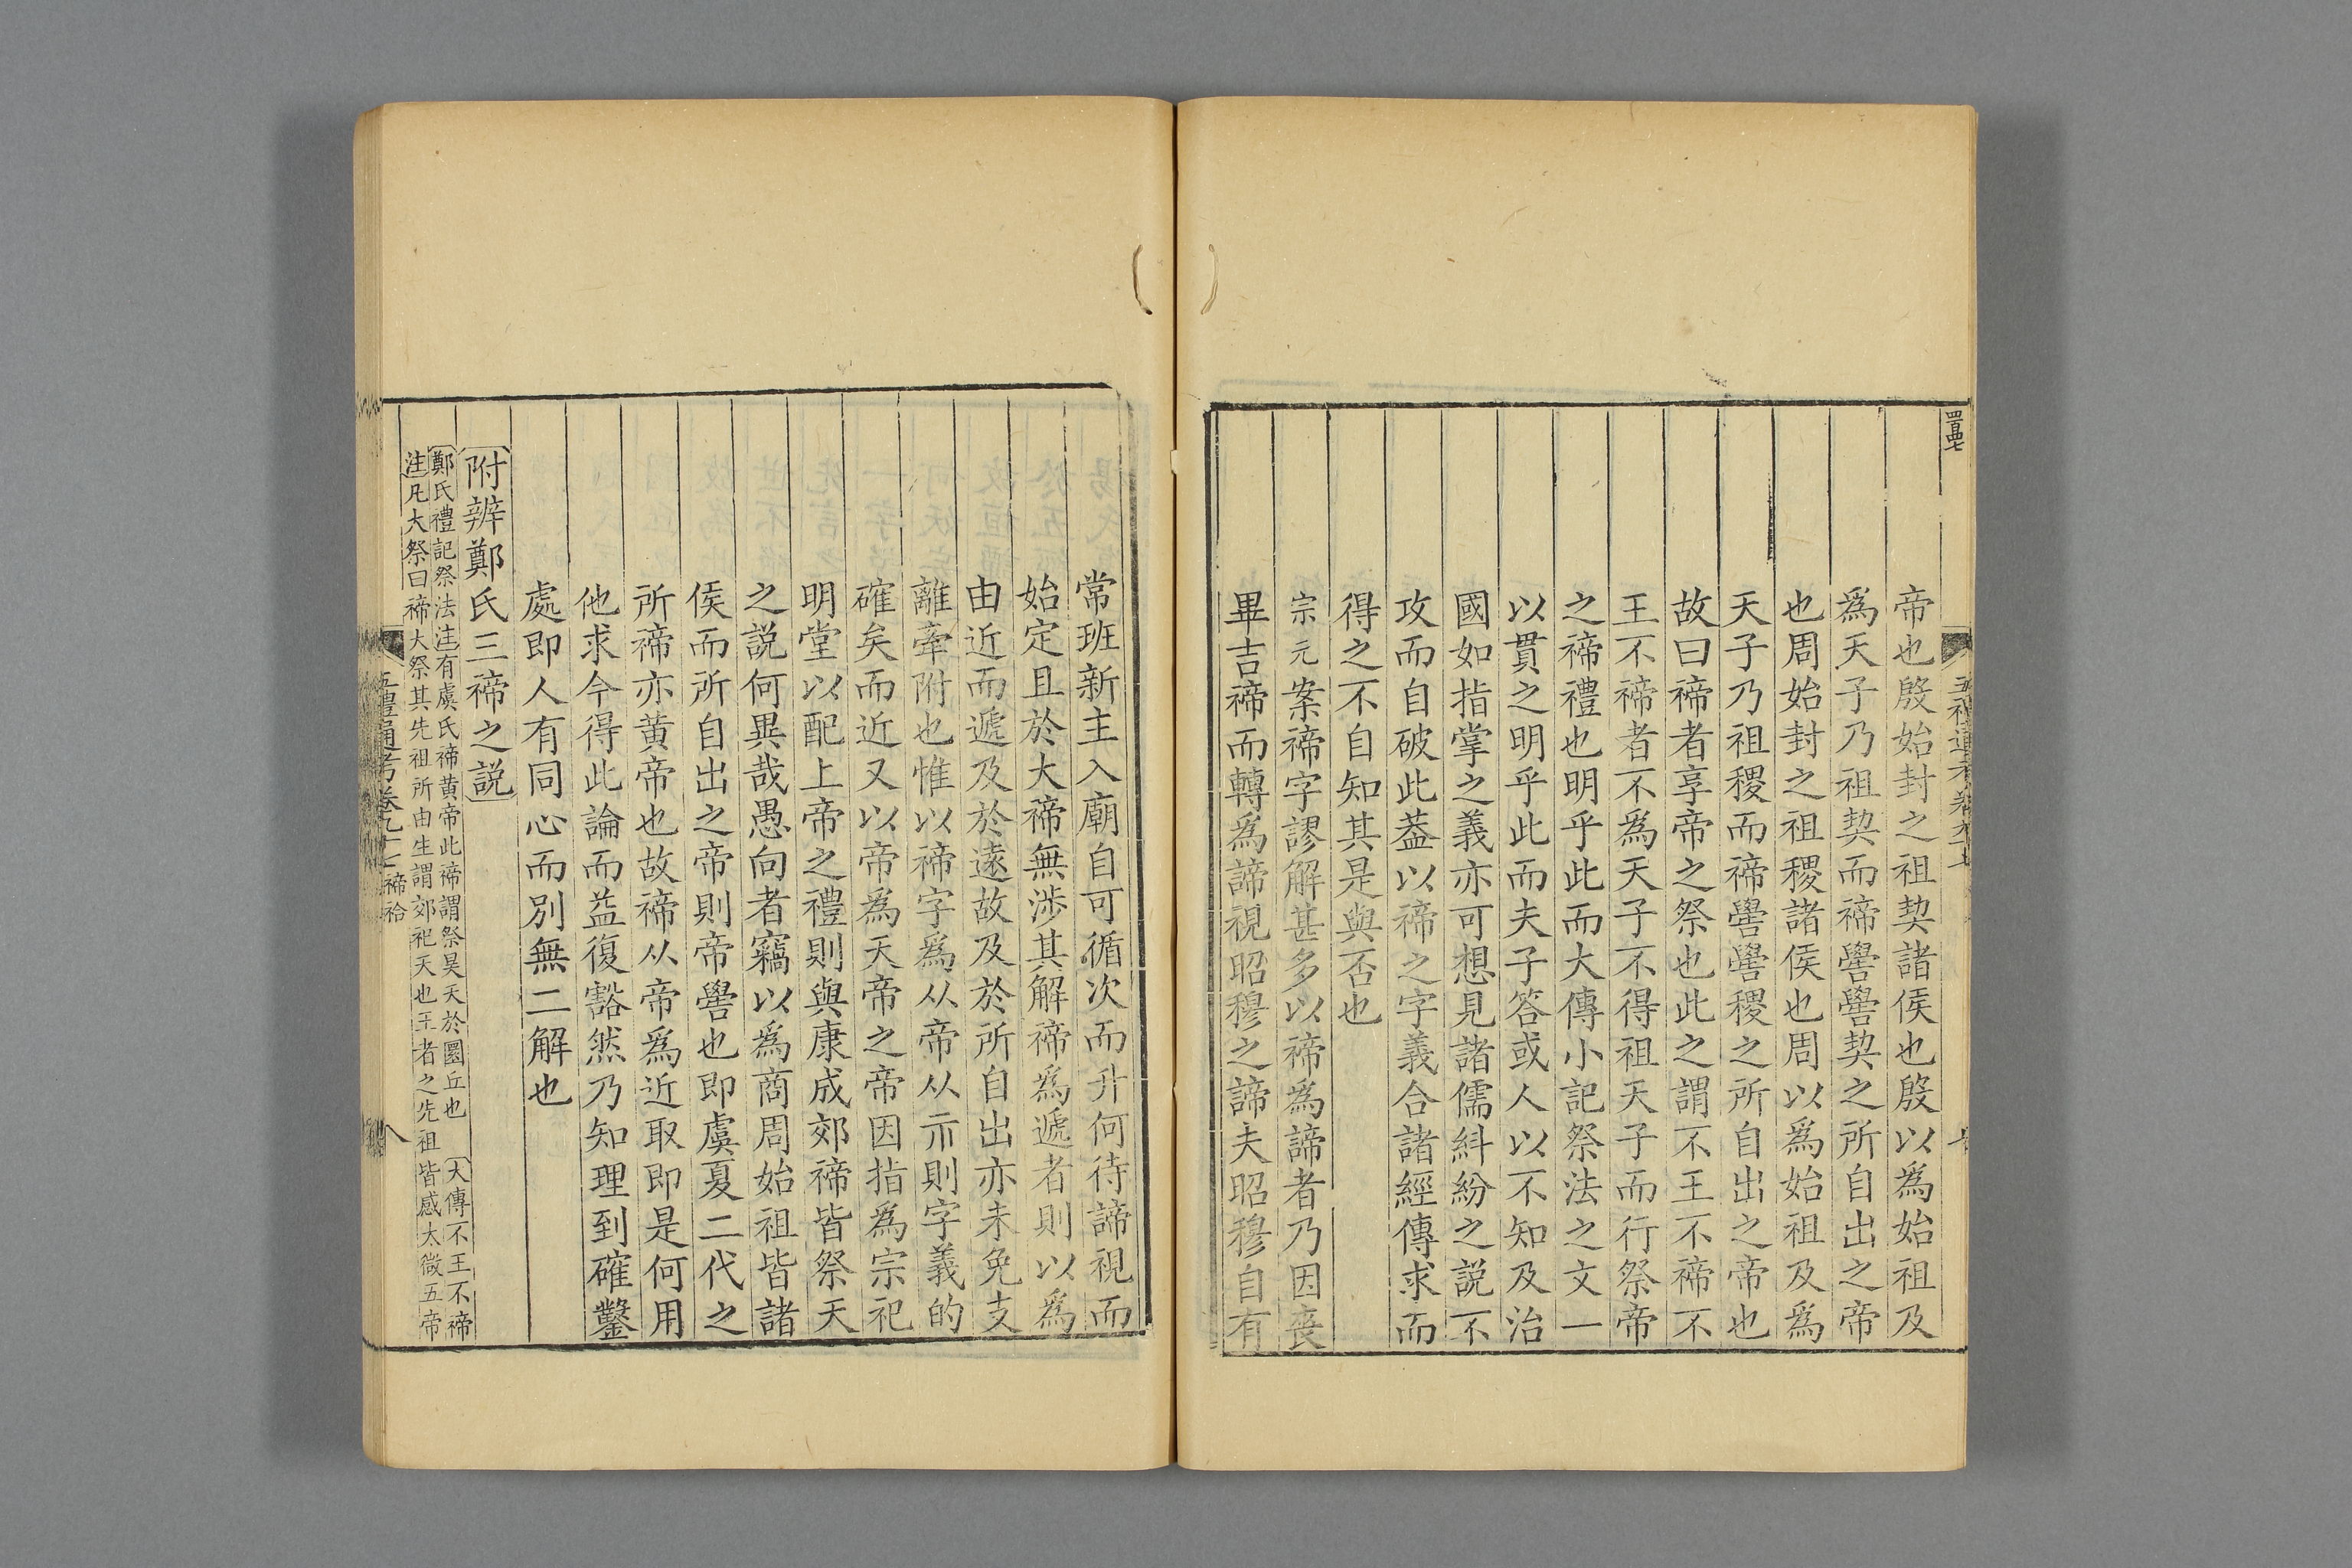 帝也殷始封之祖契諸侯也殷以爲始祖及
爲天子乃祖契而禘嚳嚳契之所自出之帝
也周始封之祖稷諸侯也周以爲始祖及爲
天子乃祖稷而禘嚳嚳稷之所自出之帝也
故曰禘者享帝之祭也此之謂不王不禘不
王不禘者不爲天子不得祖天子而行祭帝
之禘禮也明乎此而大傳小記祭法之文一
以貫之明乎此而夫子答或人以不知及治
國如指掌之義亦可想見諸儒糾紛之説不
攻而自破此葢以禘之字義合諸經傳求而
得之不自知其是與否也
宗元案禘字謬解甚多以禘爲諦者乃因喪
畢吉禘而轉爲諦視昭穆之諦夫昭穆自有
常班新主入廟自可循次而升何待諦視而
始定且於大禘無涉其解禘爲遞者則以爲
由近而遞及於遠故及於所自出亦未免支
離牽附也惟以禘字爲从帝从示則字義的
確矣而近又以帝爲天帝之帝因指爲宗祀
明堂以配上帝之禮則與康成郊禘皆祭天
之説何異哉愚向者竊以爲商周始祖皆諸
侯而所自出之帝則帝嚳也即虞夏二代之
所禘亦黄帝也故禘从帝爲近取即是何用
他求今得此論而益復豁然乃知理到確鑿
處即人有同心而別無二解也
附辨鄭氏三禘之説
鄭氏禮記祭法注有虞氏禘黄帝此禘謂祭昊天於圜丘也 大傳不王不禘
注凡大祭曰禘大祭其先祖所由生謂郊祀天也王者之先祖皆感太微五帝
五禮通考卷九十七 禘祫